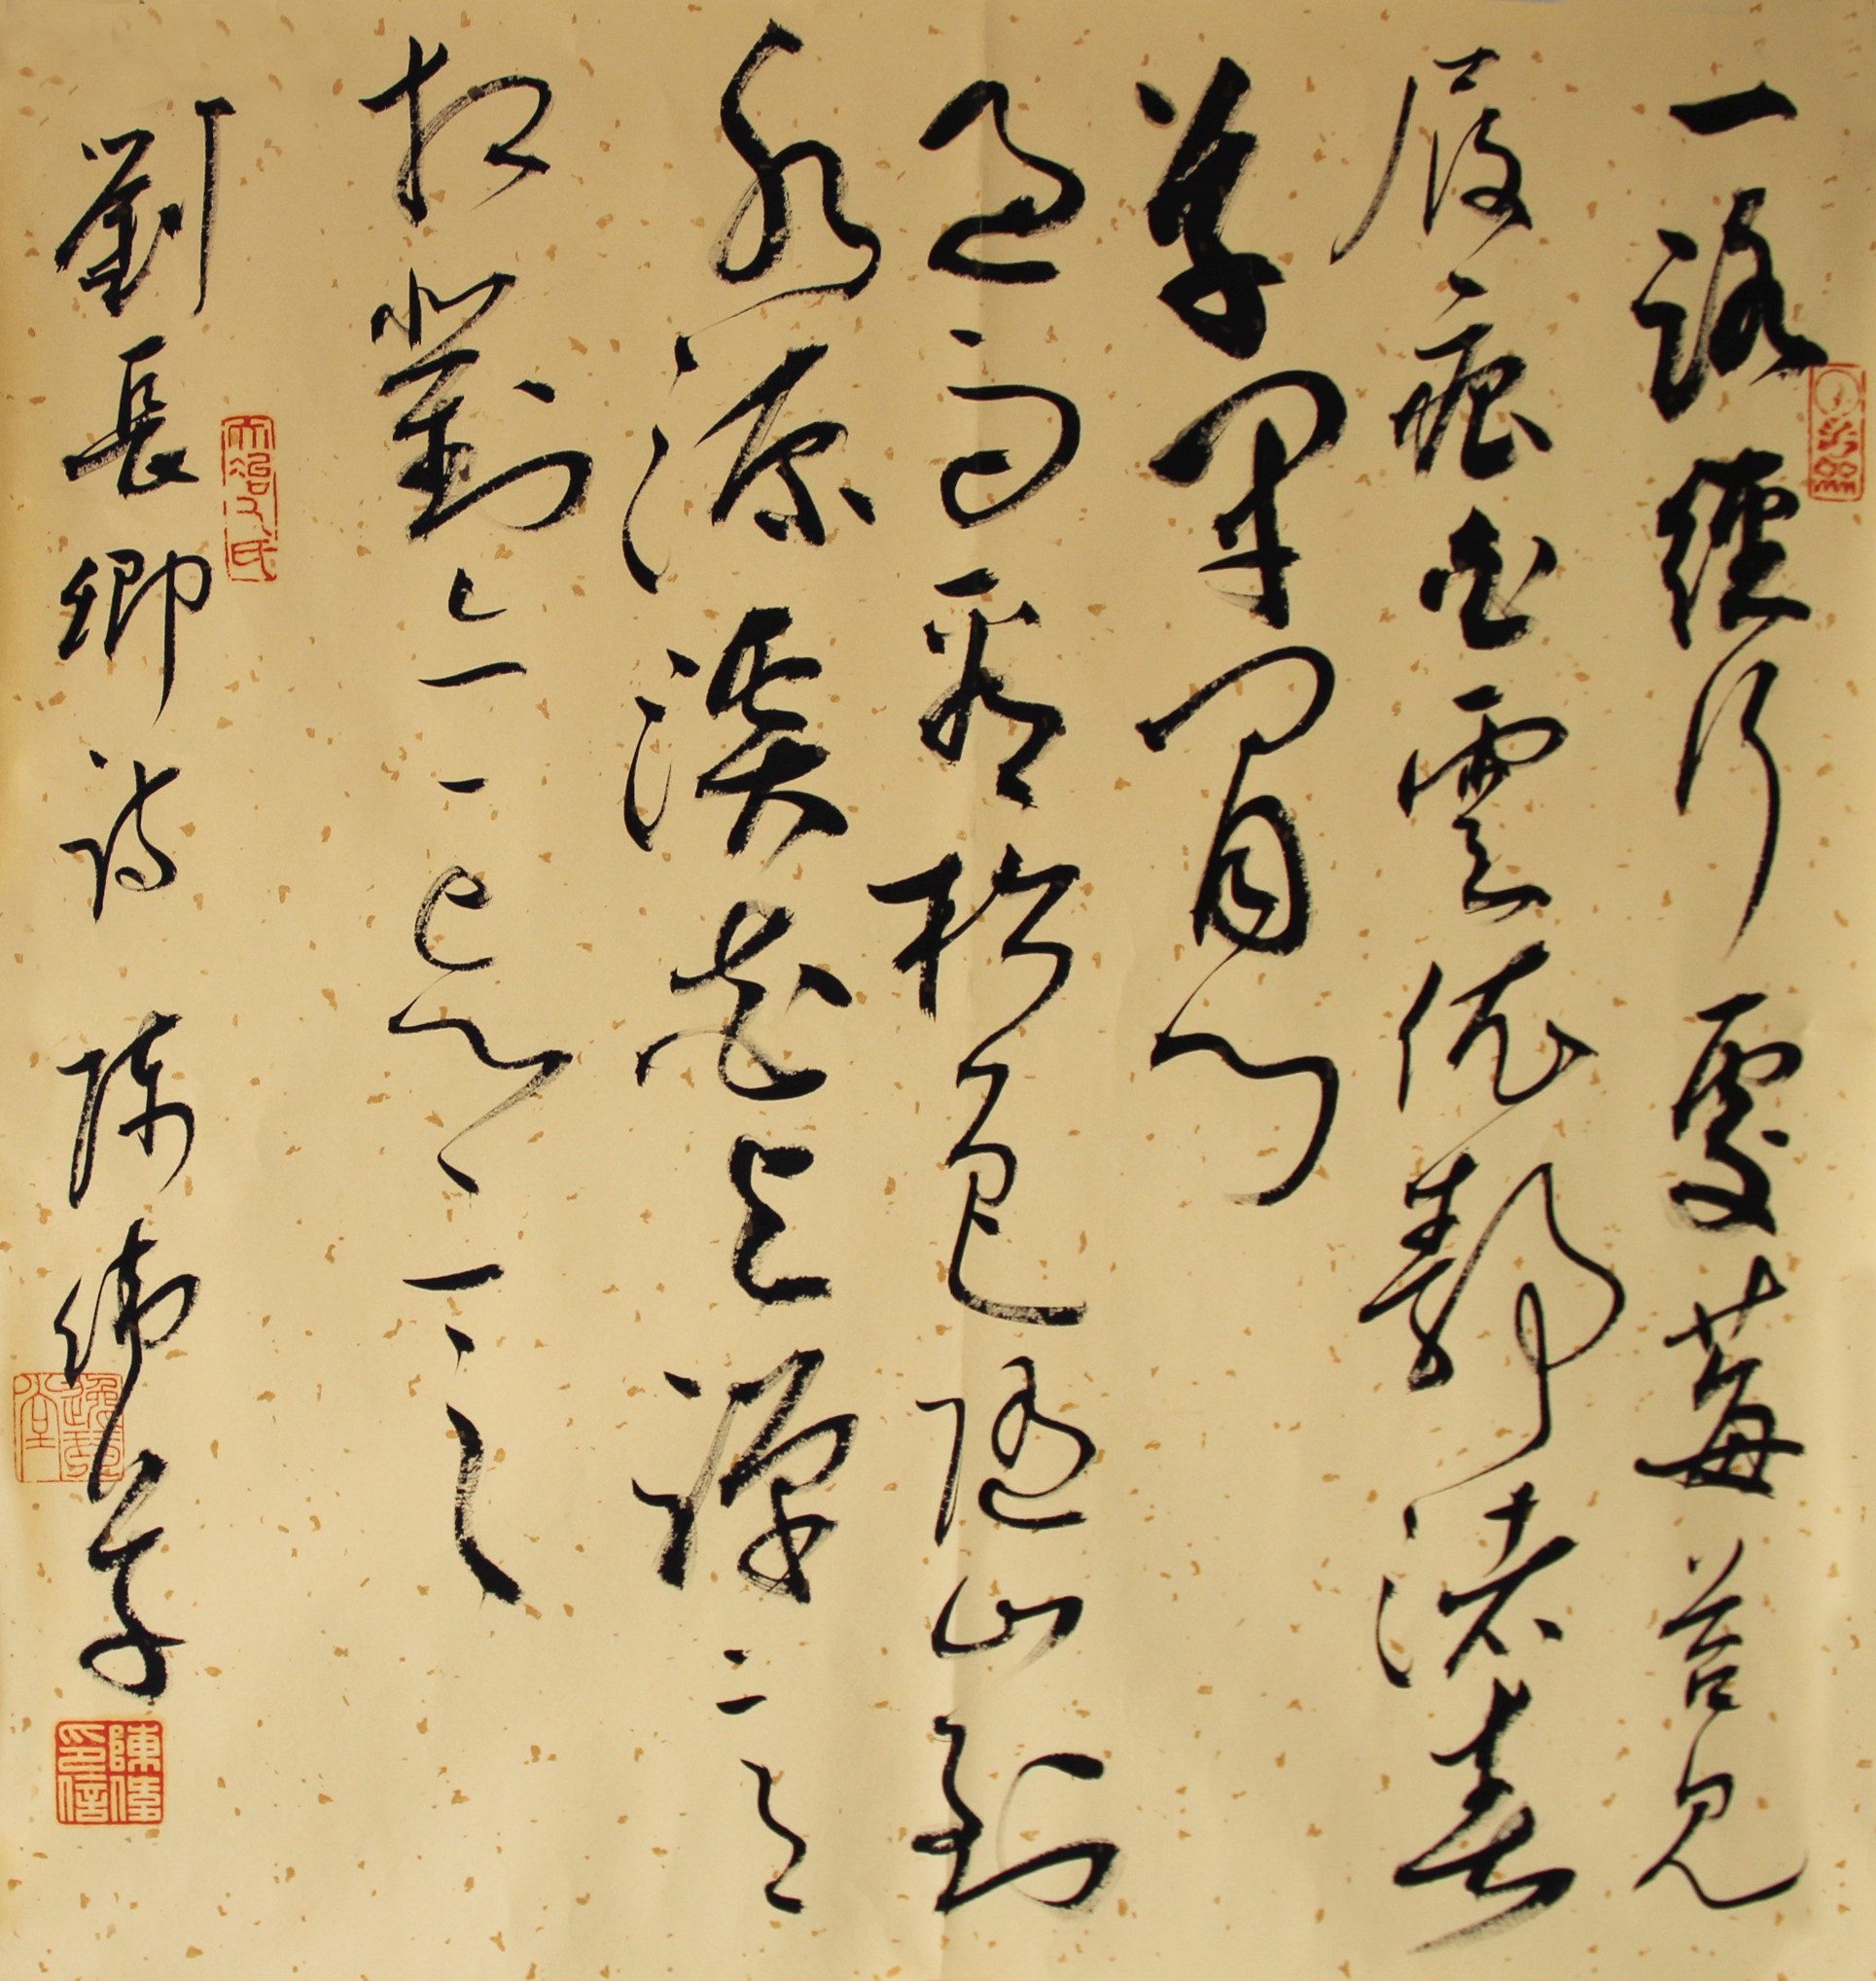 一路經行處莓苔見
履痕白雲依靜渚春
草閉閒門
過雨看松色隨山到
水源溪花與禪意
相對亦忘言
劉長卿詩 陳偉草
大冶人氏
陳偉印信